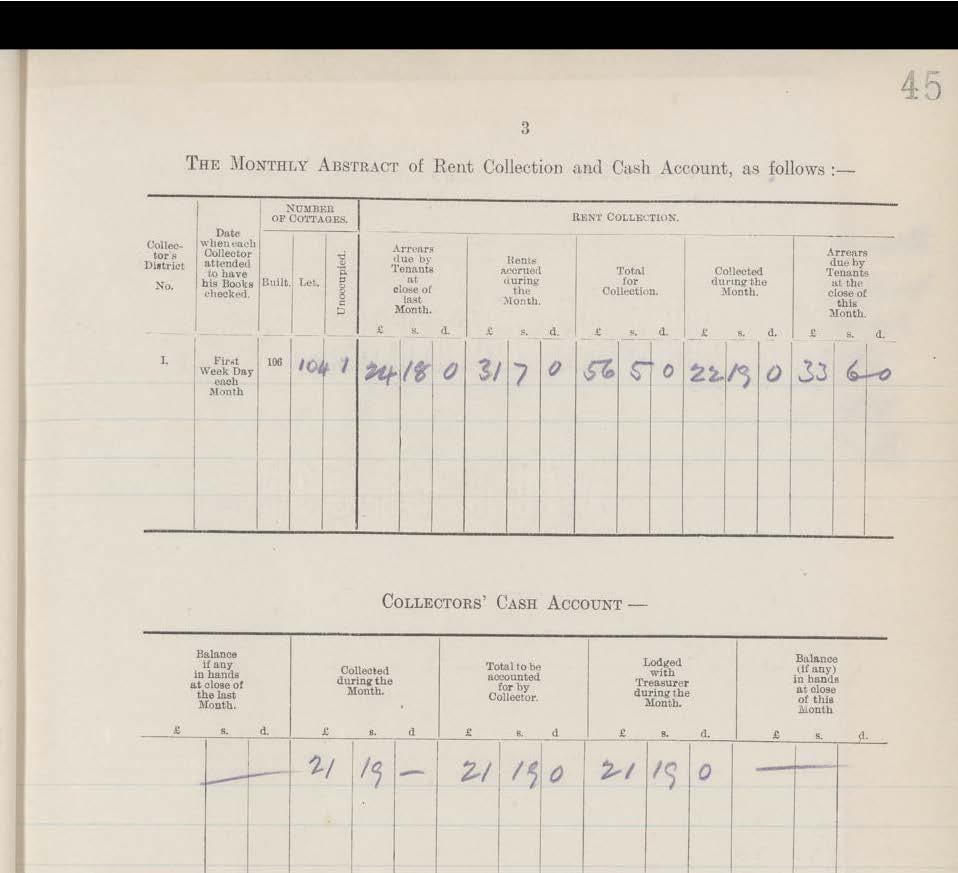 45
3
THE MONTHLY ABSTRACT of Rent Collection and Cash Account, as follows :—
Collec-tor's District No.
Date when each Collector attended to have his Books checked.
NUMBER OF COTTAGES.
Built. Let. Unoccupied.
RENT COLLECTION.
Arrears due by Tenants at close of last Month.
Rents accrued during the Month.
Total for Collection.
Collected during the Month.
Arrears due by Tenants at the close of this Month.
£ s. d. £ s. d. £ s. d. £ s. d. £ s. d.
I. First Week Day each Month 106 104 1 24 18 0 31 7 0 56 5 0 22 19 0 33 6 0
COLLECTORS' CASH ACCOUNT —
Balance if any in hands at close of the last Month.
Collected during the Month.
Total to be accounted for by Collector.
Lodged with Treasurer during the Month.
Balance (if any) in hands at close of this Month
£ s. d. £ s. d £ s. d £ s. d. £ s. d.
— 21 19 — 21 19 0 21 19 0 —